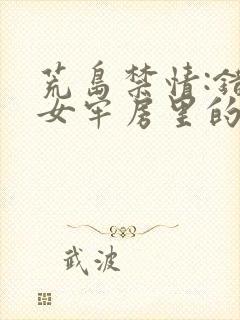 荒岛禁情:错
女牢房里的
武波